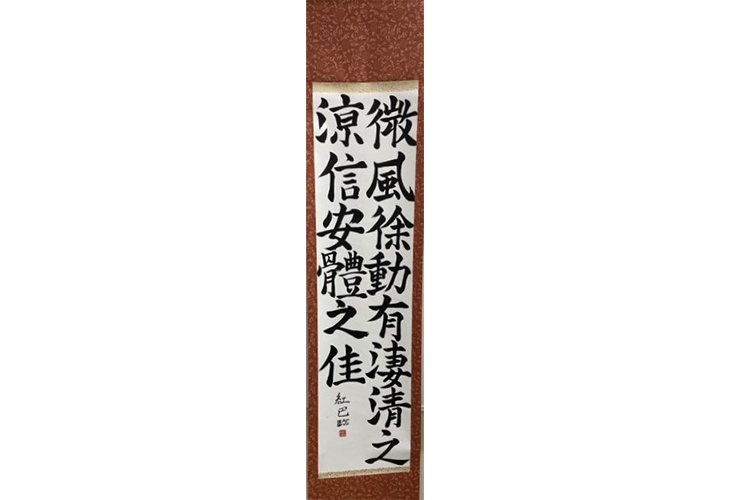 微風徐動有淒清之
涼信安體之佳
紅巴臨